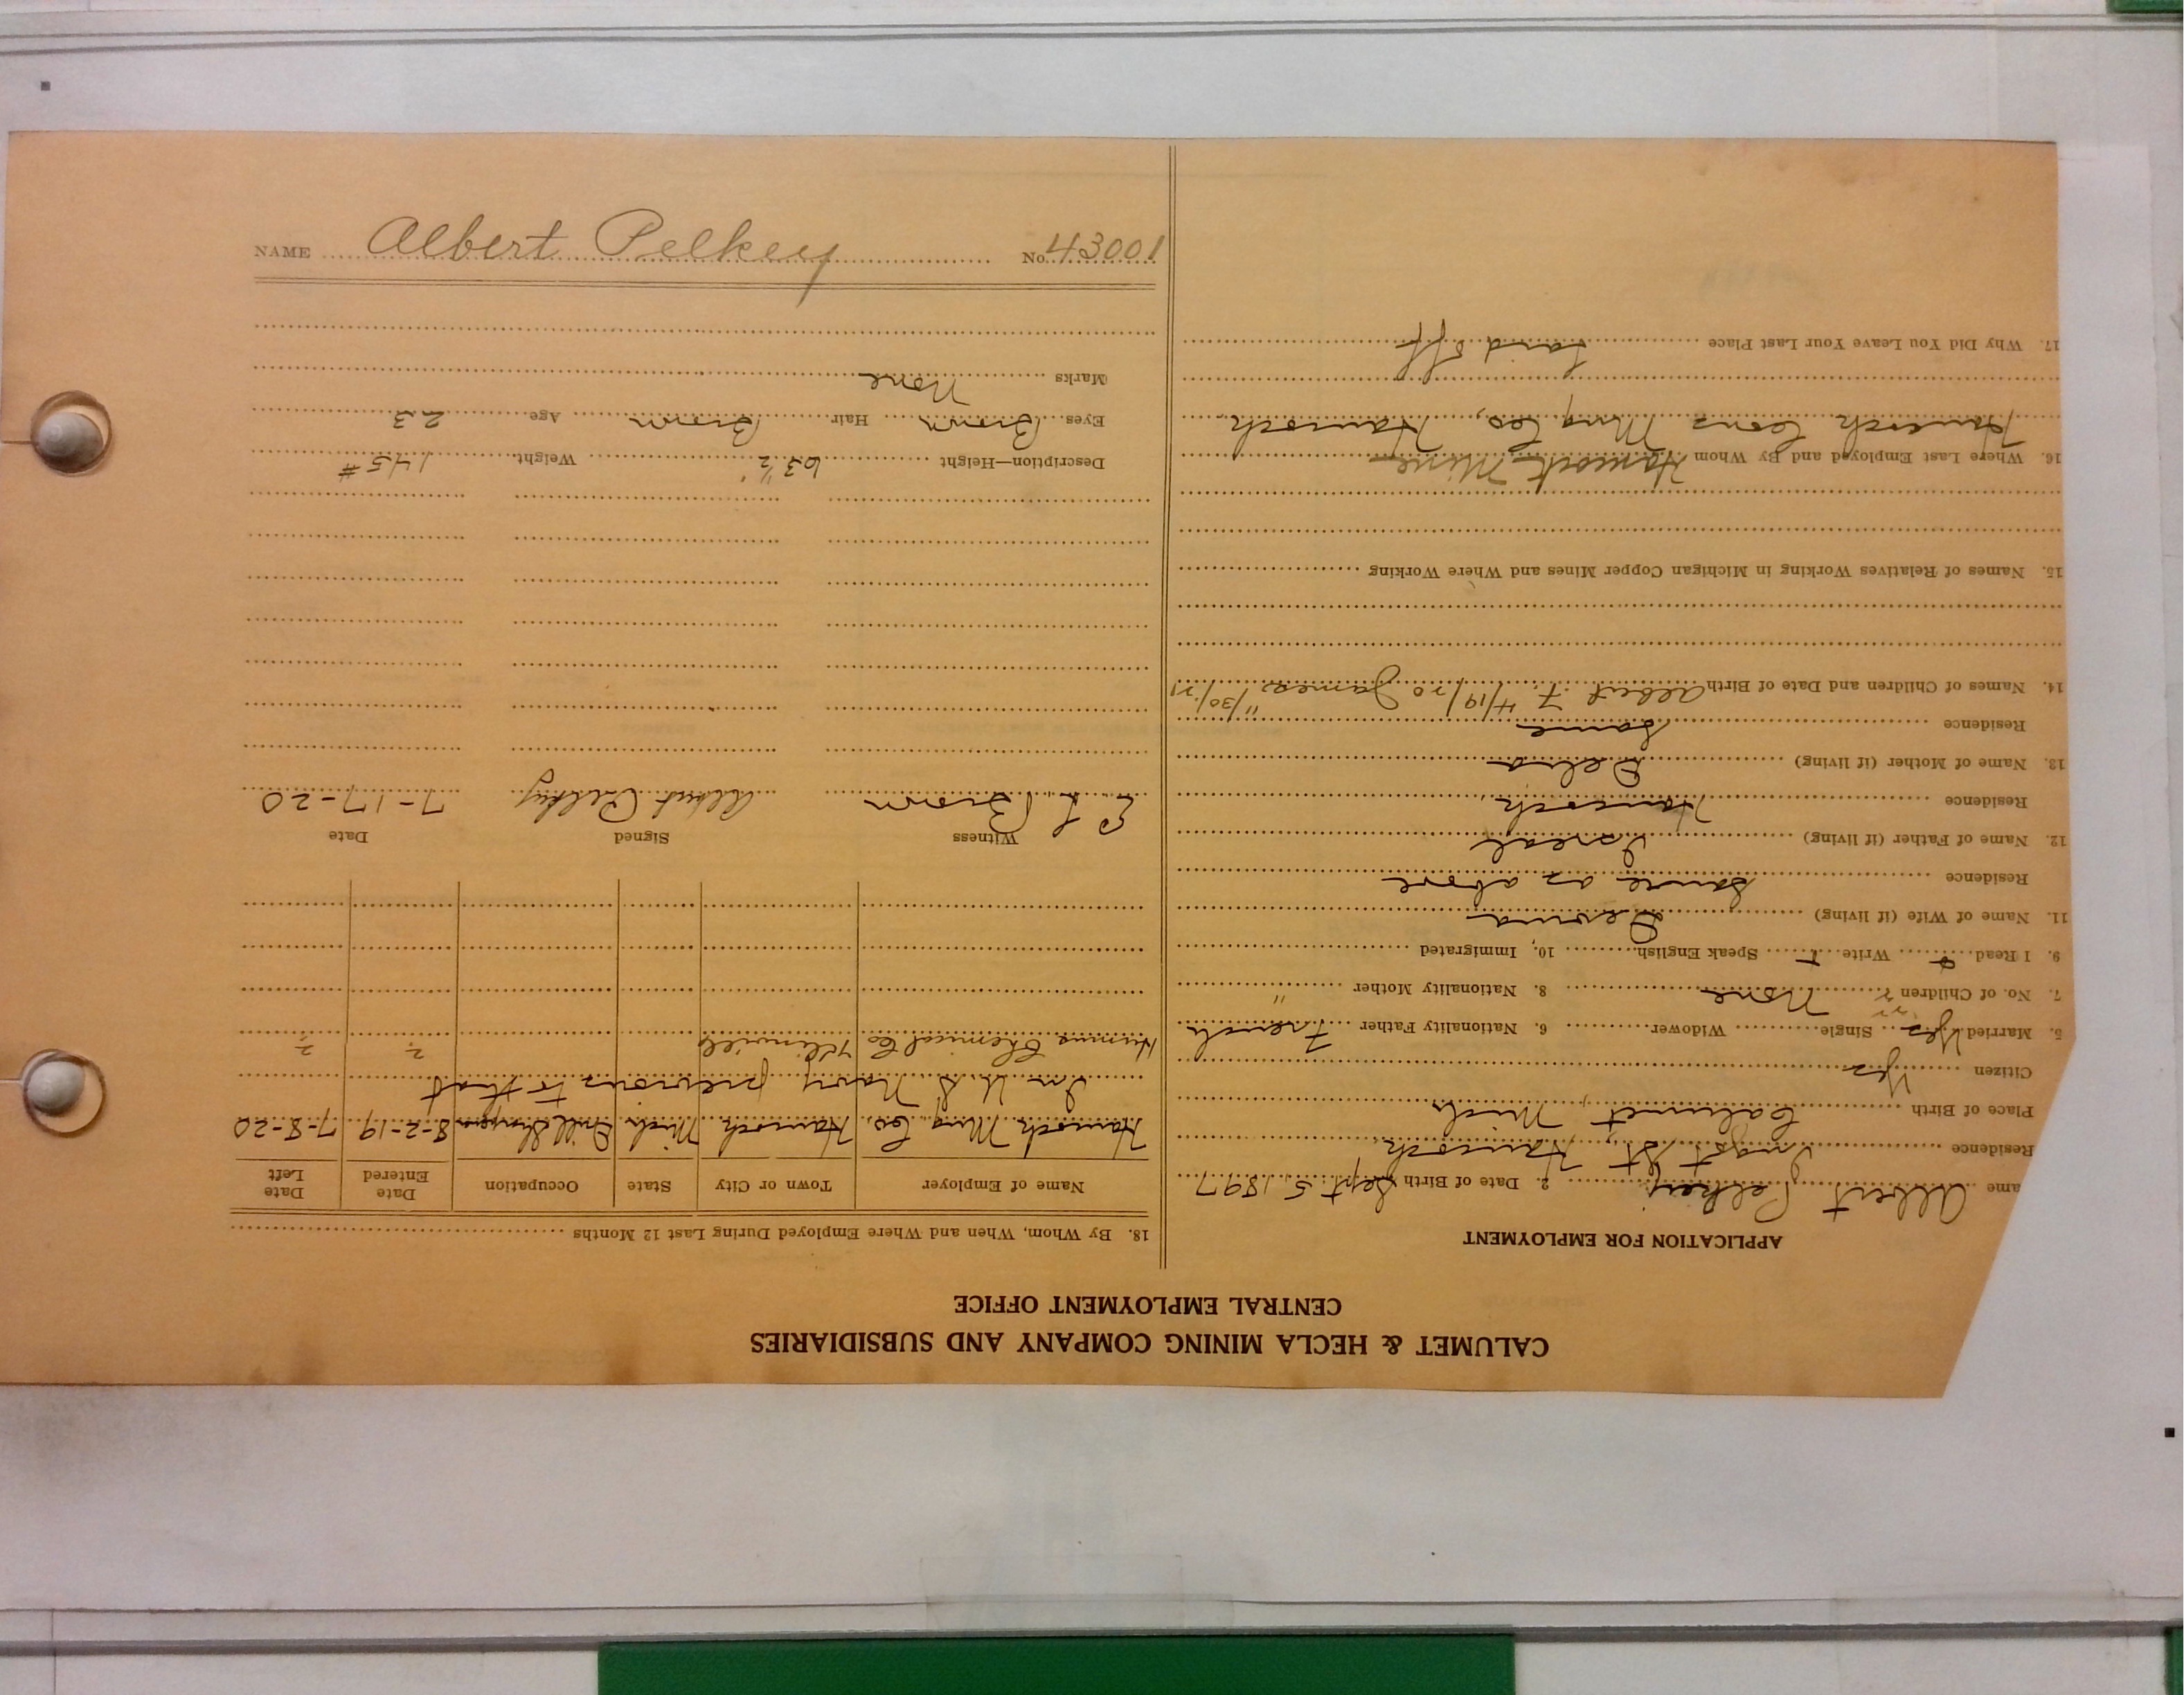 CALUMET & HECLA MINING COMPANY AND SUBSIDIARIES
CENTRAL EMPLOYMENT OFFICE
APPLICATION FOR EMPLOYMENT
ame Albert Pelkey 2. Date of Birth Sept 5, 1897
Residence St., Hancock
Place of Birth Calumet, Mich
Citizen Yes
5. Married Yes Single Widower 6. Nationality Father French
7. No. of Children None 8. Nationality Mother "
9. I Read Write Speak English 10. Immigrated
11. Name of Wife (if living)
Residence Same as above
12. Name of Father (if living)
Residence Hancock
13. Name of Mother (if living) Delia
Residence Same
14. Names of Children and Date of Birth Albert F. 4/19/20 James 11/30/21
15. Names of Relatives Working in Michigan Copper Mines and Where Working
16. Where Last Employed and By Whom Hancock Mine
Hancock Cons Mng Co, Hancock
17. Why Did You Leave Your Last Place Laid off
18. By Whom, When and Where Employed During Last 12 Months
Name of Employer Town or City State Occupation Date Entered Date Left
Hancock Mng Co. Hancock Mich Drill Sharpener 8-2-19 7-8-20
In U.S. Navy previous to that
Chemical Co ? ?
Witness Signed Date
E L Brown Albert Pelkey 7-17-20
Description—Height 63 1/2" Weight 145 #
Eyes Brown Hair Brown Age 23
Marks None
NAME Albert Pelkey No. 43001